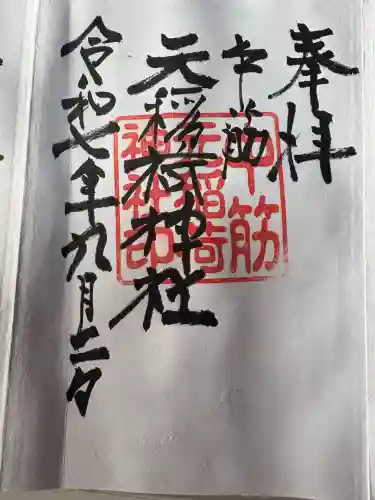 奉拝
中筋
元稲荷神社
令和七年九月二日
中筋
元稲荷
神社印